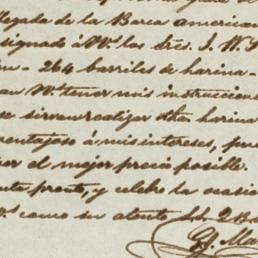 llegada de la Barca american
signado á V.s los Sres. J. W. S
264 barriles de harina
an V.s tener mis instruccione
se sirvan realizar dha harina
ventajoso á mis intereses, pro
el mejor precio posible.
presente, y celebro la ocasio
como su atento